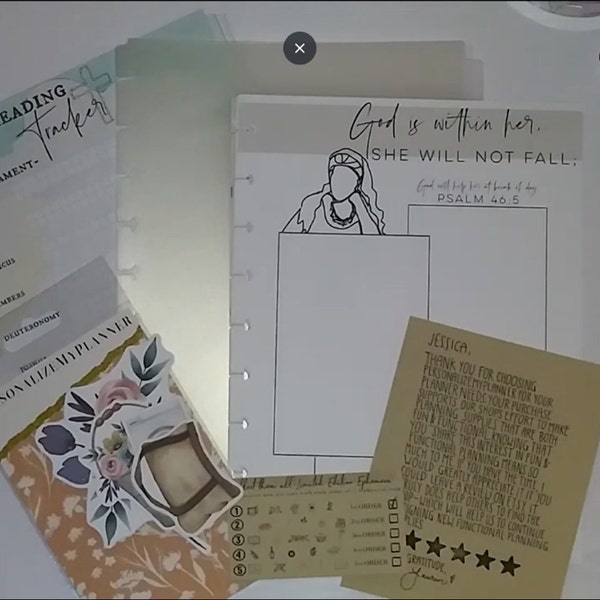 EADING
Tracker
AMENT-
CUS
MBERS
DEUTERONOMY
SONALIZEMYPLANNER
God is within her,
SHE WILL NOT FALL;
God will help her at break of day.
PSALM 46:5
JESSICA,
THANK YOU FOR CHOOSING
PERSONALIZEMYPLANNER FOR YOUR
PLANNER NEEDS. YOUR PURCHASE
SUPPORTS OUR SHOP'S EFFORT TO MAKE
PLANNING SUPPLIES THAT ARE BOTH
FUN & FUNCTIONAL. KNOWING THAT
YOU SHARE THIS INTEREST IN FUN &
FUNCTIONAL PLANNING MEANS SO
MUCH TO ME. IF YOU HAVE TIME, I
WOULD GREATLY APPRECIATE IT IF YOU
COULD LEAVE A REVIEW ON ETSY. IT
DOES HELP OTHERS TO FIND THE
WHICH WILL HELP US TO CONTINUE
GNING NEW FUNCTIONAL PLANNING
PLIES
GRATITUDE,
them all! Limited Edition Ephemera
1 ORDER
2 ORDER
3 ORDER
4 ORDER
5 ORDER